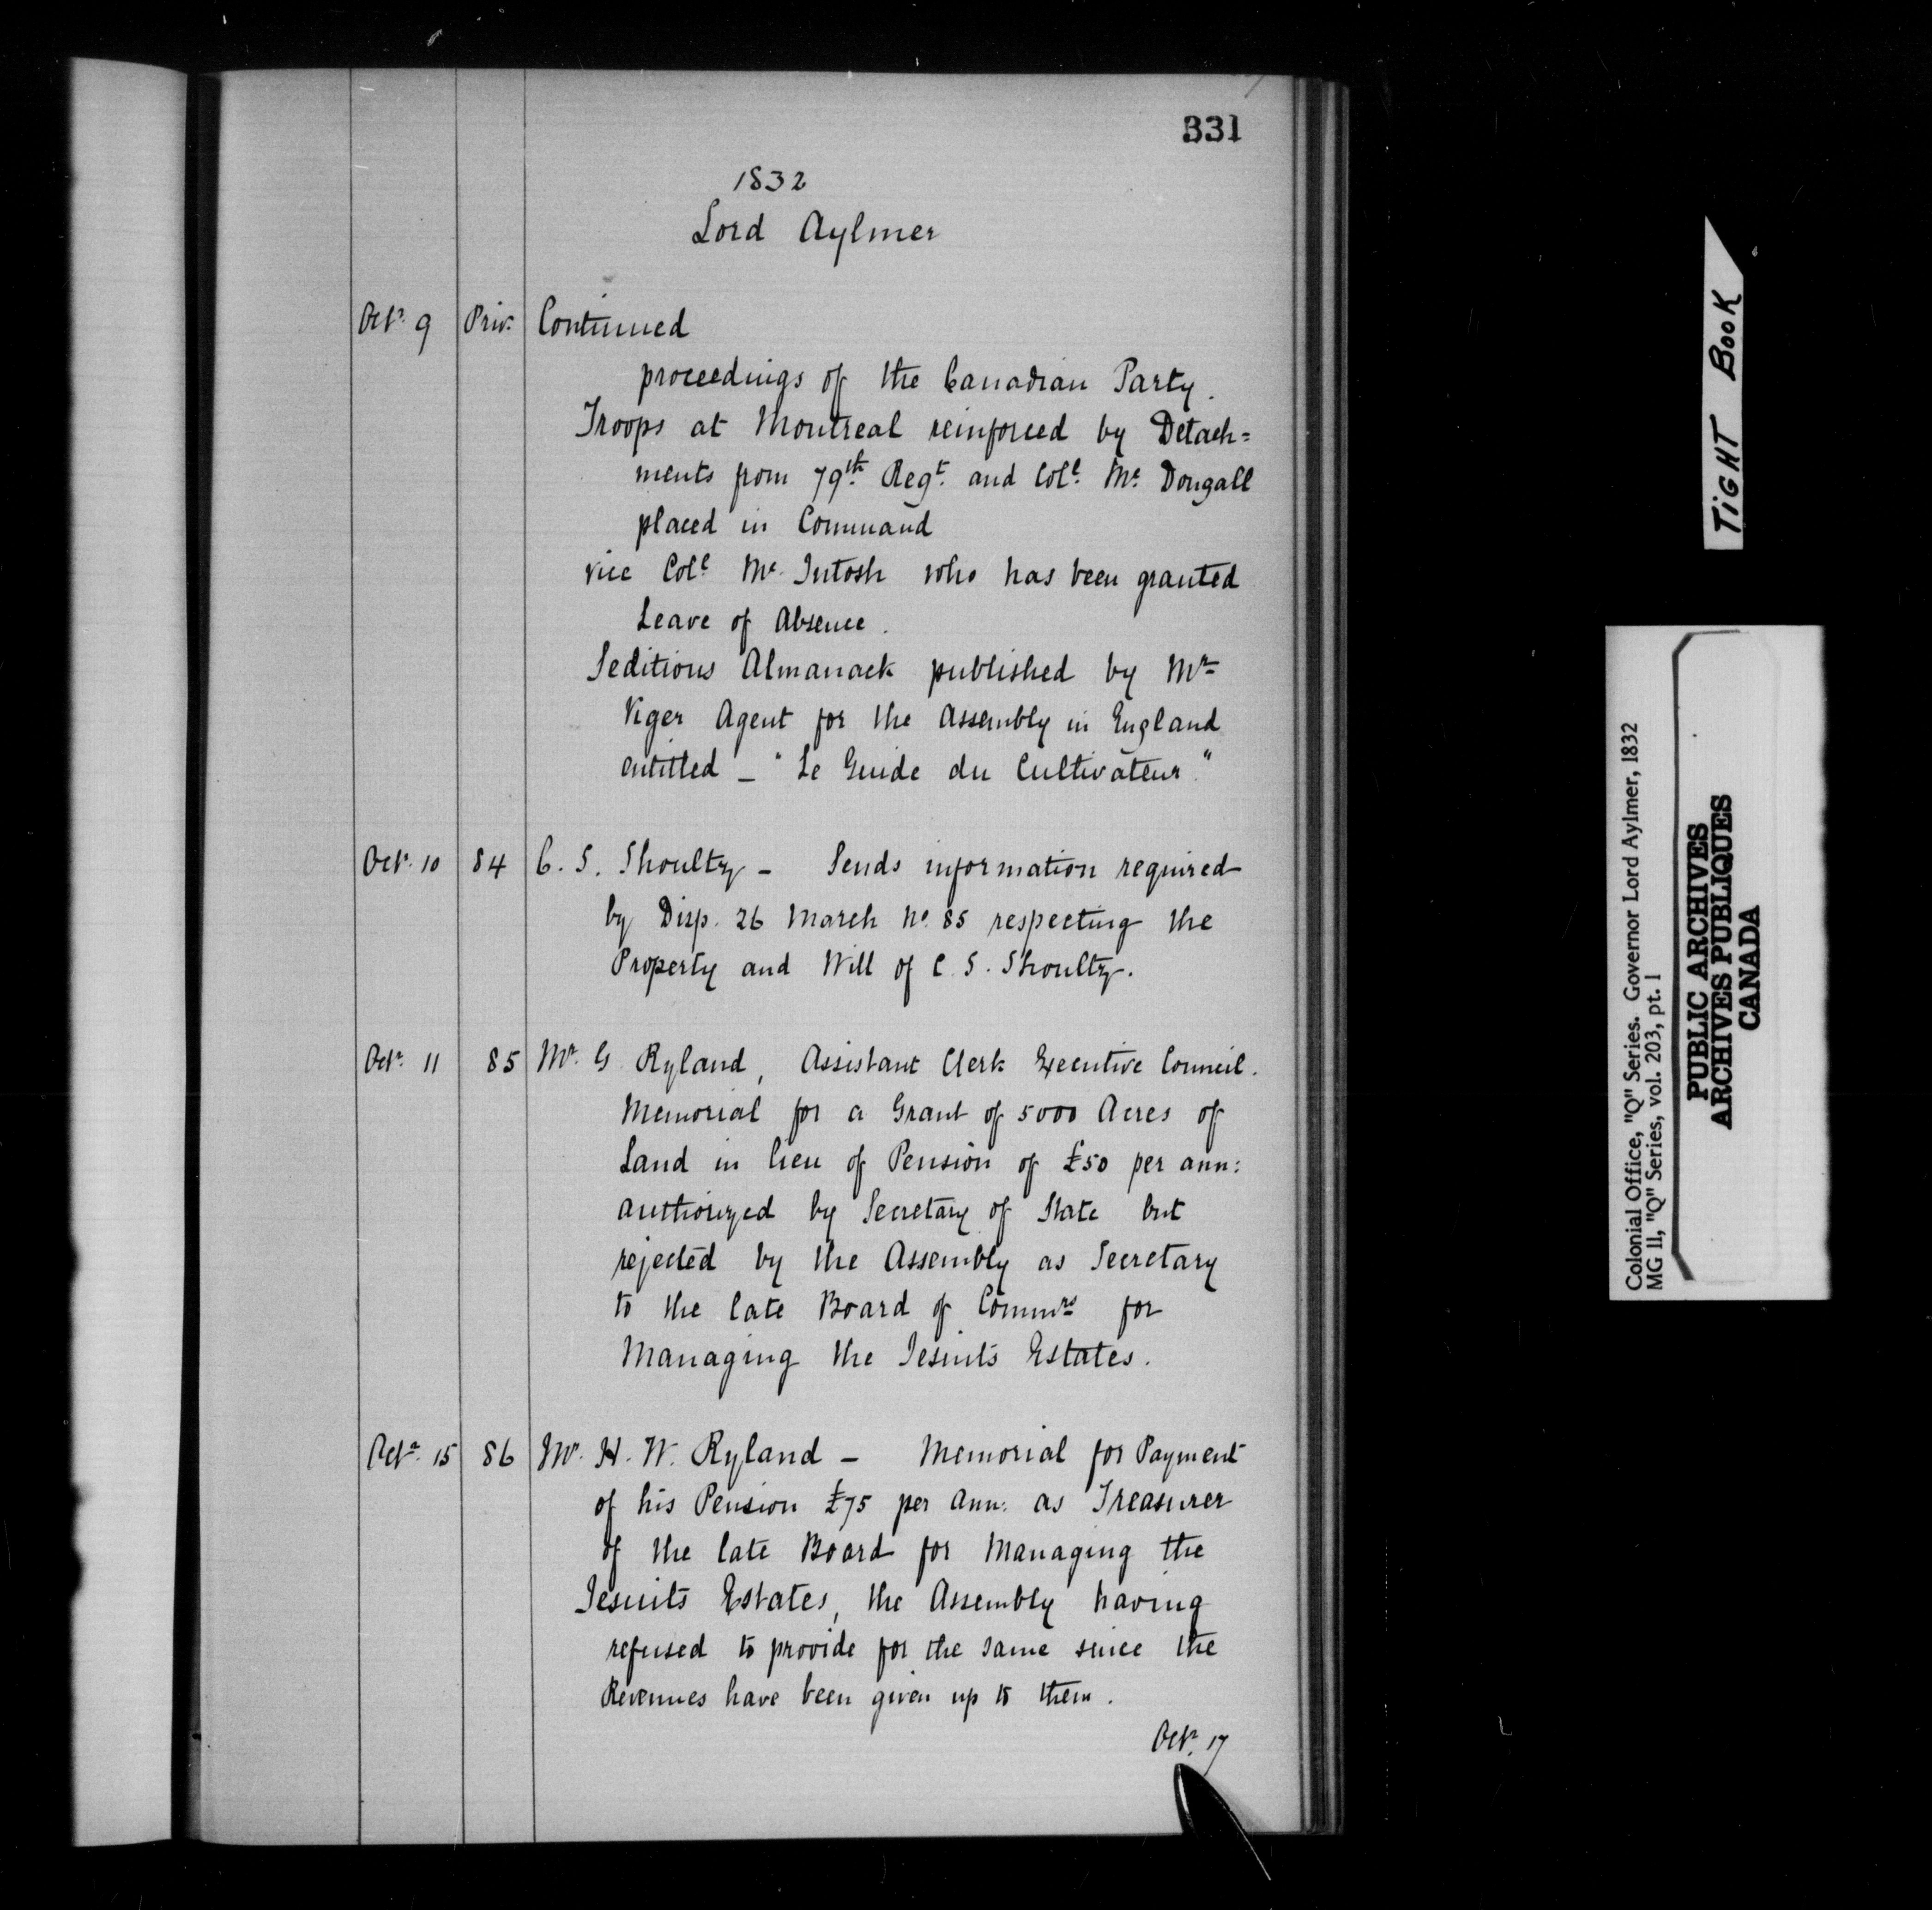 331
1832
Lord Aylmer
Octr. 9 Priv. Continued
proceedings of the Canadian Party.
Troops at Montreal reinforced by Detach=
ments from 79th Regt. and Coll. Mc. Dougall
placed in Command
vice Coll. Mc. Intosh who has been granted
Leave of Absence.
Seditious Almanack published by Mr
Viger Agent for the Assembly in England
entitled _ "Le Guide du Cultivateur."
Octr. 10 84 C. S. Shoultz - Sends information required
by Disp. 26 March No. 85 respecting the
Property and Will of C. S. Shoultz.
Octr. 11 85 Mr. G Ryland, Assistant Clerk Executive Council.
Memorial for a Grant of 5000 Acres of
Land in lieu of Pension of £50 per ann:
authorized by Secretary of State but
rejected by the Assembly as Secretary
to the late Board of Commrs for
Managing the Jesuits Estates.
Octr. 15 86 Mr. H. W. Ryland - Memorial for Payment
of his Pension £75 per ann: as Treasurer
of the late Board for Managing the
Jesuits Estates, the Assembly having
refused to provide for the same since the
Revenues have been given up to them.
Octr. 17
TIGHT BOOK
Colonial Office, "Q" Series. Governor Lord Aylmer, 1832
MG 11, "Q" Series, vol. 203, pt. 1
PUBLIC ARCHIVES
ARCHIVES PUBLIQUES
CANADA